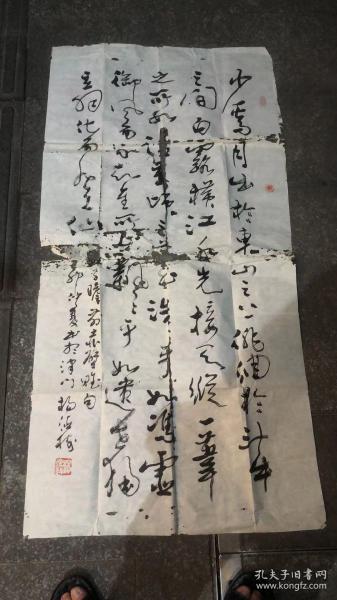 少焉月出於東山之上徘徊於斗牛
之間白露横江水光接天縱一葦
之所如凌萬頃之茫然浩〻乎如馮虛
御風而不知其所止飄〻乎如遺世獨
立羽化而登仙
子瞻前赤壁賦句
夏書於津門 楊
孔夫子旧书网
www.kongfz.com